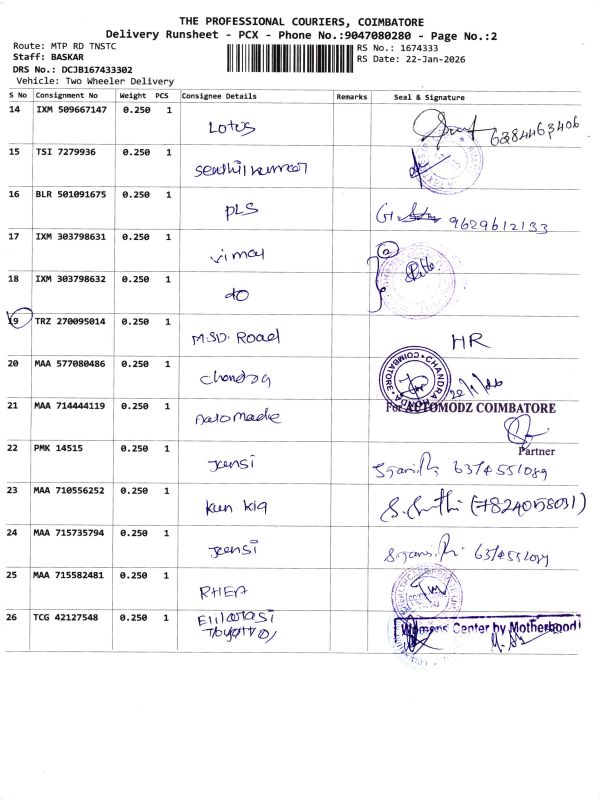 THE PROFESSIONAL COURIERS, COIMBATORE
Delivery Runsheet - PCX - Phone No.:9047080280 - Page No.:2
Route: MTP RD TNSTC
RS No.: 1674333
Staff: BASKAR
RS Date: 22-Jan-2026
DRS No.: DCJB167433302
Vehicle: Two Wheeler Delivery
S No Consignment No Weight PCS Consignee Details Remarks Seal & Signature
14 IXM 509667147 0.250 1 Lotus 6384463406
15 TSI 7279936 0.250 1 Senthilkumar
16 BLR 501091675 0.250 1 PLS 9629612133
17 IXM 303798631 0.250 1 Vimal
18 IXM 303798632 0.250 1 do
19 TRZ 270095014 0.250 1 M.S.D. Road HR
20 MAA 577080486 0.250 1 Chandra CHANDRA HONDA COIMBATORE 22/1/26
21 MAA 714444119 0.250 1 Automade For AUTOMODZ COIMBATORE
Partner
22 PMK 14515 0.250 1 Jansi
23 MAA 710556252 0.250 1 Kun kia
24 MAA 715735794 0.250 1 Jansi
25 MAA 715582481 0.250 1 RHEA
26 TCG 42127548 0.250 1 Womens Center by Motherhood
Toyotta